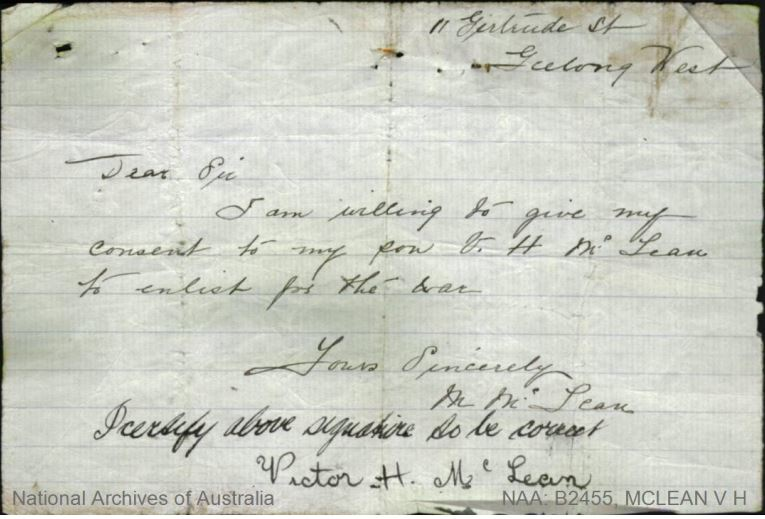 11 Gertrude St
Geelong West
Dear Sir
I am willing to give my
consent to my son V. H Mc Lean
to enlist for the war
Yours Sincerely
M Mc Lean
I certify above signature to be correct
Victor H. Mc Lean
National Archives of Australia
NAA: B2455, MCLEAN V H